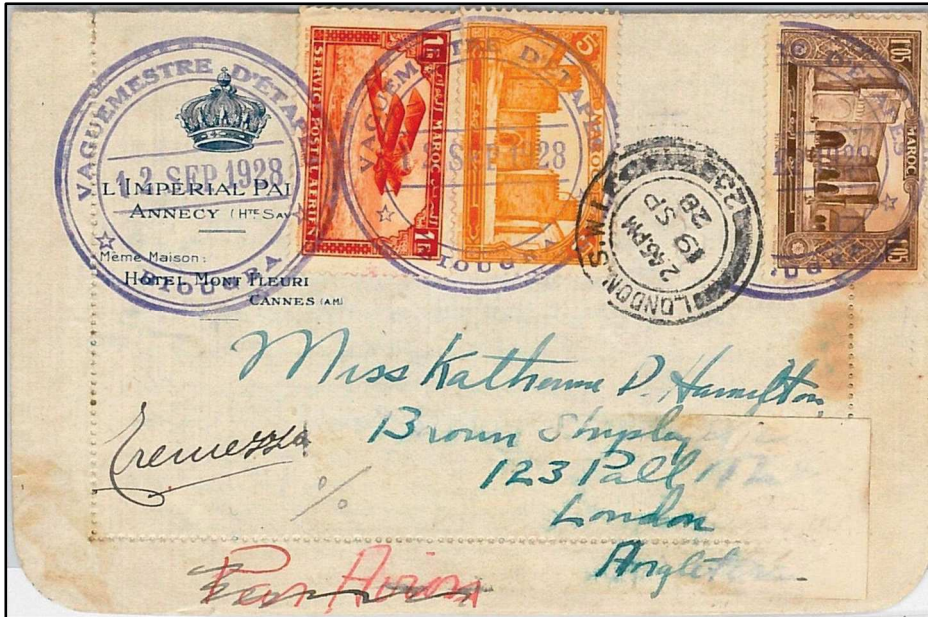 VAGUEMESTRE D'ÉTAP
12 SEP 1928
L'IMPÉRIAL PAL
ANNECY (HTE SAV
Même Maison:
HÔTEL MONT FLEURI
CANNES (A.M)
1 FR MAROC
SERVICE POSTAL AÉRIEN
1 FR
5
MAROC
VAGUEMESTRE D'ÉTAP
SEP 1928
1F05
MAROC
1F05
LONDON. S.W.1
2.45 PM
19 SP
28
Miss Katherine D. Hamilton,
Brown Shipley
123 Pall
London
Angleterre
Tremezzo
%
Par Avion